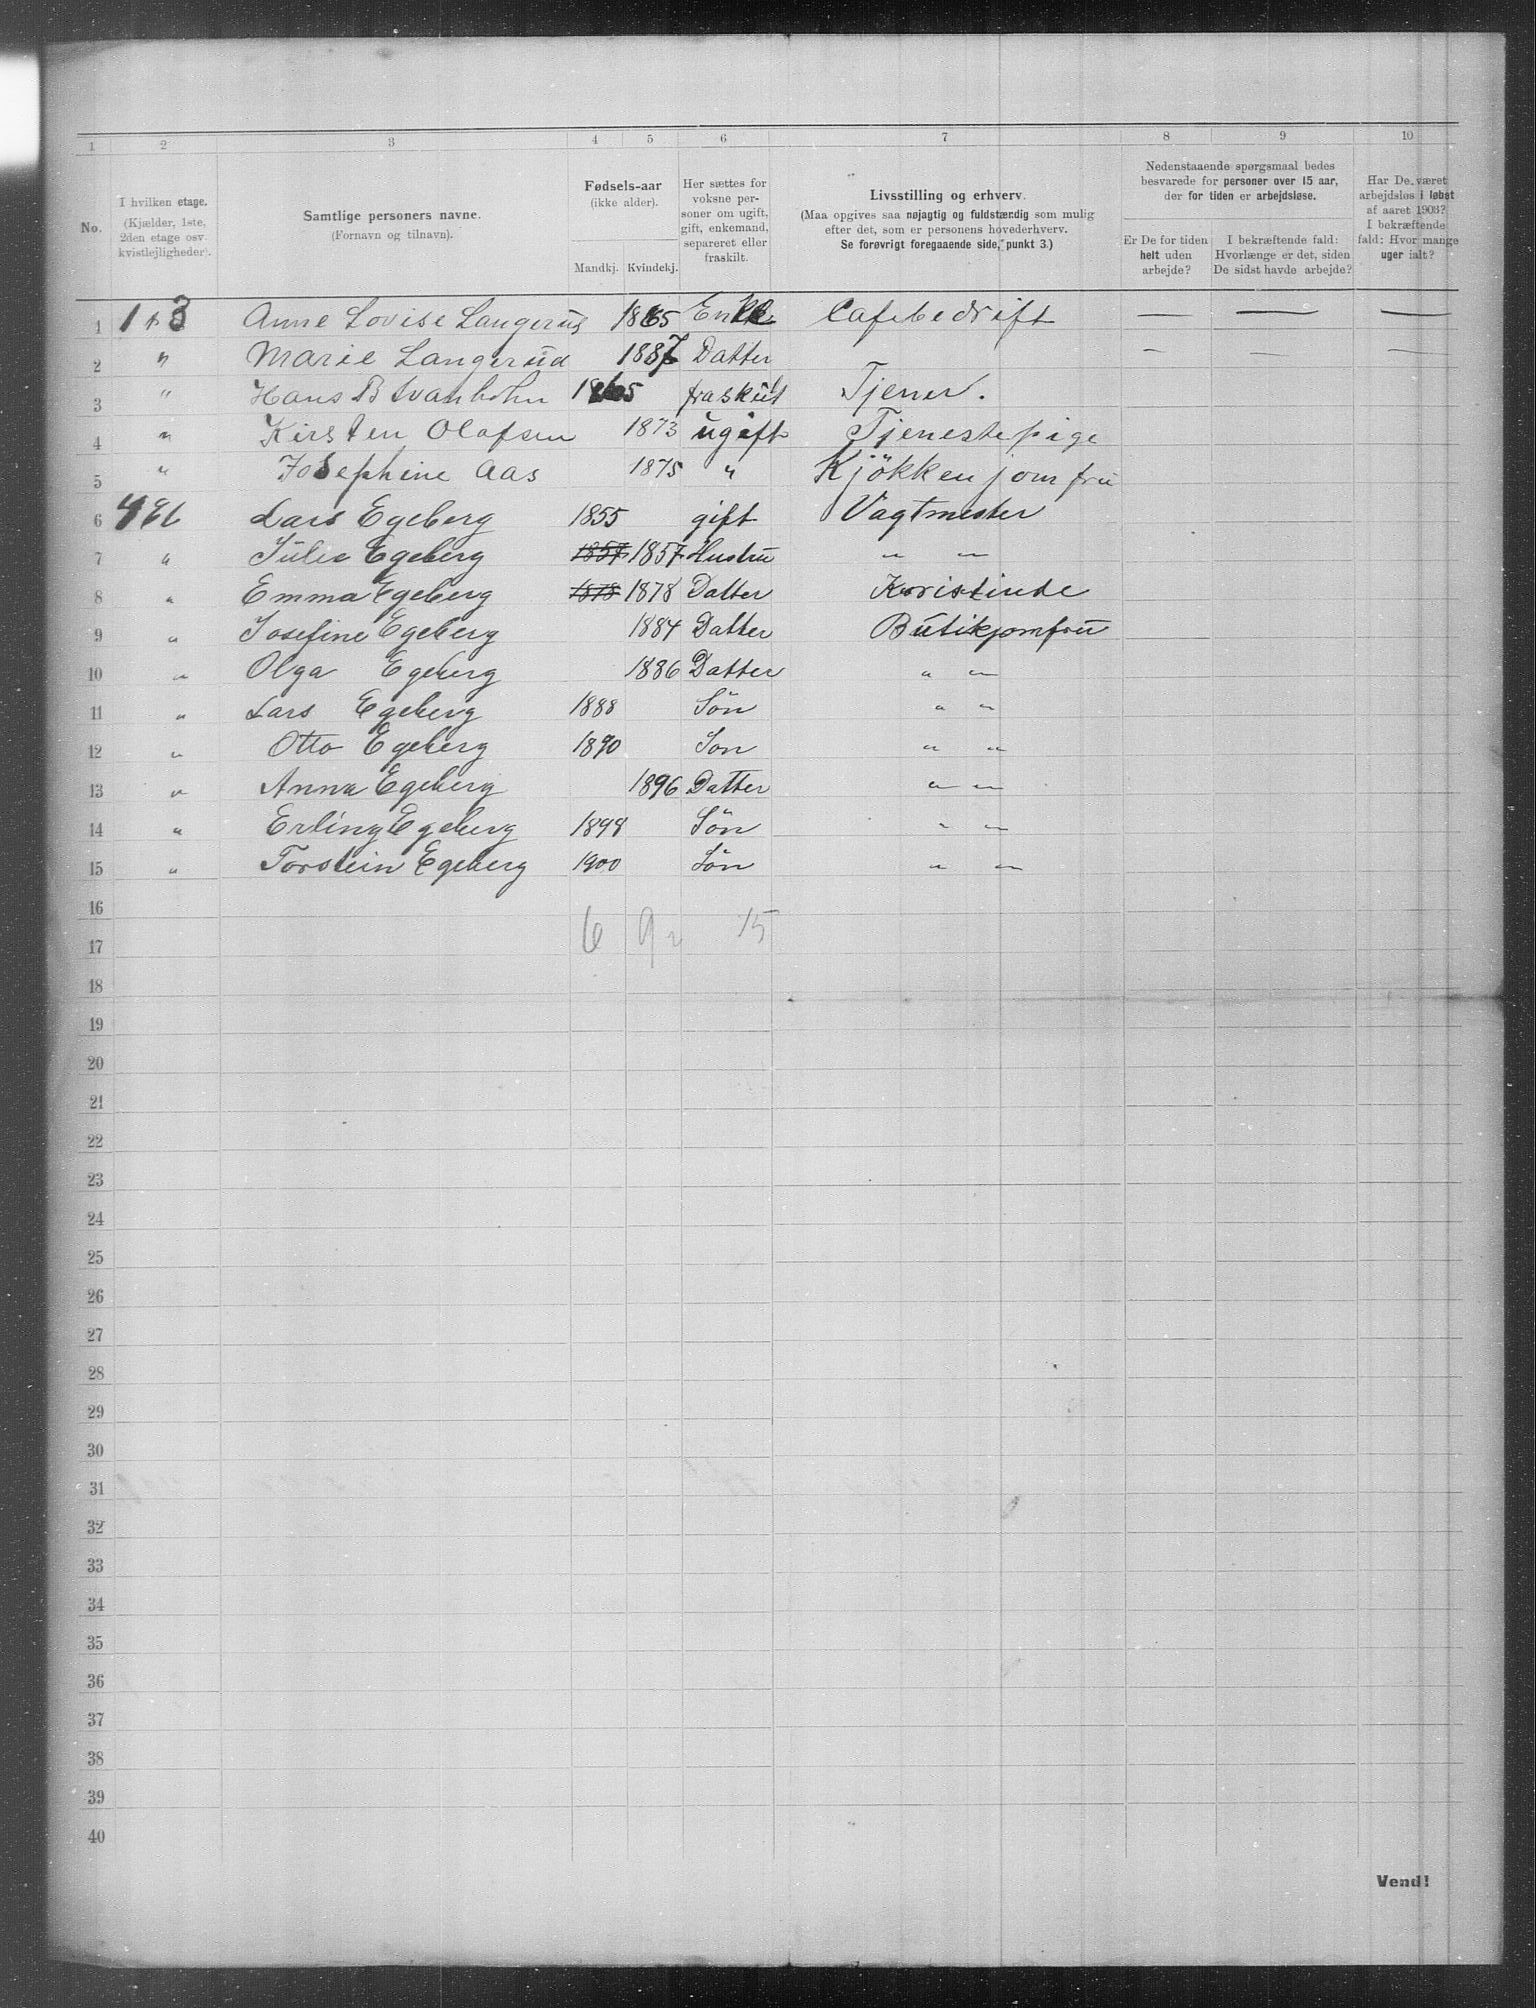 1 2 3 4 5 6 7 8 9 10
No. I hvilken etage. (Kjælder, 1ste, 2den etage osv. kvistlejligheder). Samtlige personers navne. (Fornavn og tilnavn). Fødsels-aar (ikke alder). Mandkj. Kvindekj. Her sættes for voksne personer om ugift, gift, enkemand, separeret eller fraskilt. Livsstilling og erhverv. (Maa opgives saa nøjagtig og fuldstændig som mulig efter det, som er personens hovederhverv. Se forøvrigt foregaaende side, punkt 3.) Nedenstaaende spørgsmaal bedes besvarede for personer over 15 aar, der for tiden er arbejdsløse. Er De for tiden helt uden arbejde? I bekræftende fald: Hvorlænge er det, siden De sidst havde arbejde? Har De været arbejdsløs i løbet af aaret 1903? I bekræftende fald: Hvor mange uger ialt?
1 Anne Lovise Langerud 1865 Enke Cafebedrift — — —
2 " Marie Langerud 1887 Datter — — —
3 " Hans B 1865 fraskilt Tjener.
4 " Kirsten Olafsen 1873 ugift Tjenestepige
5 " Josephine Aas 1875 " Kjökkenjomfru
6 Lars Egeberg 1855 gift Vagtmester
7 " Julie Egeberg 1857 1857 Hustru " "
8 " Emma Egeberg 1878 1878 Datter Koristinde
9 " Josefine Egeberg 1884 Datter Butikjomfru
10 " Olga Egeberg 1886 Datter " "
11 " Lars Egeberg 1888 Sön " "
12 " Otto Egeberg 1890 Son " "
13 " Anna Egeberg 1896 Datter " "
14 " Erling Egeberg 1898 Sön " "
15 " Torstein Egeberg 1900 Sön " "
16
17 6 9 15
18
19
20
21
22
23
24
25
26
27
28
29
30
31
32
33
34
35
36
37
38
39
40
Vend!